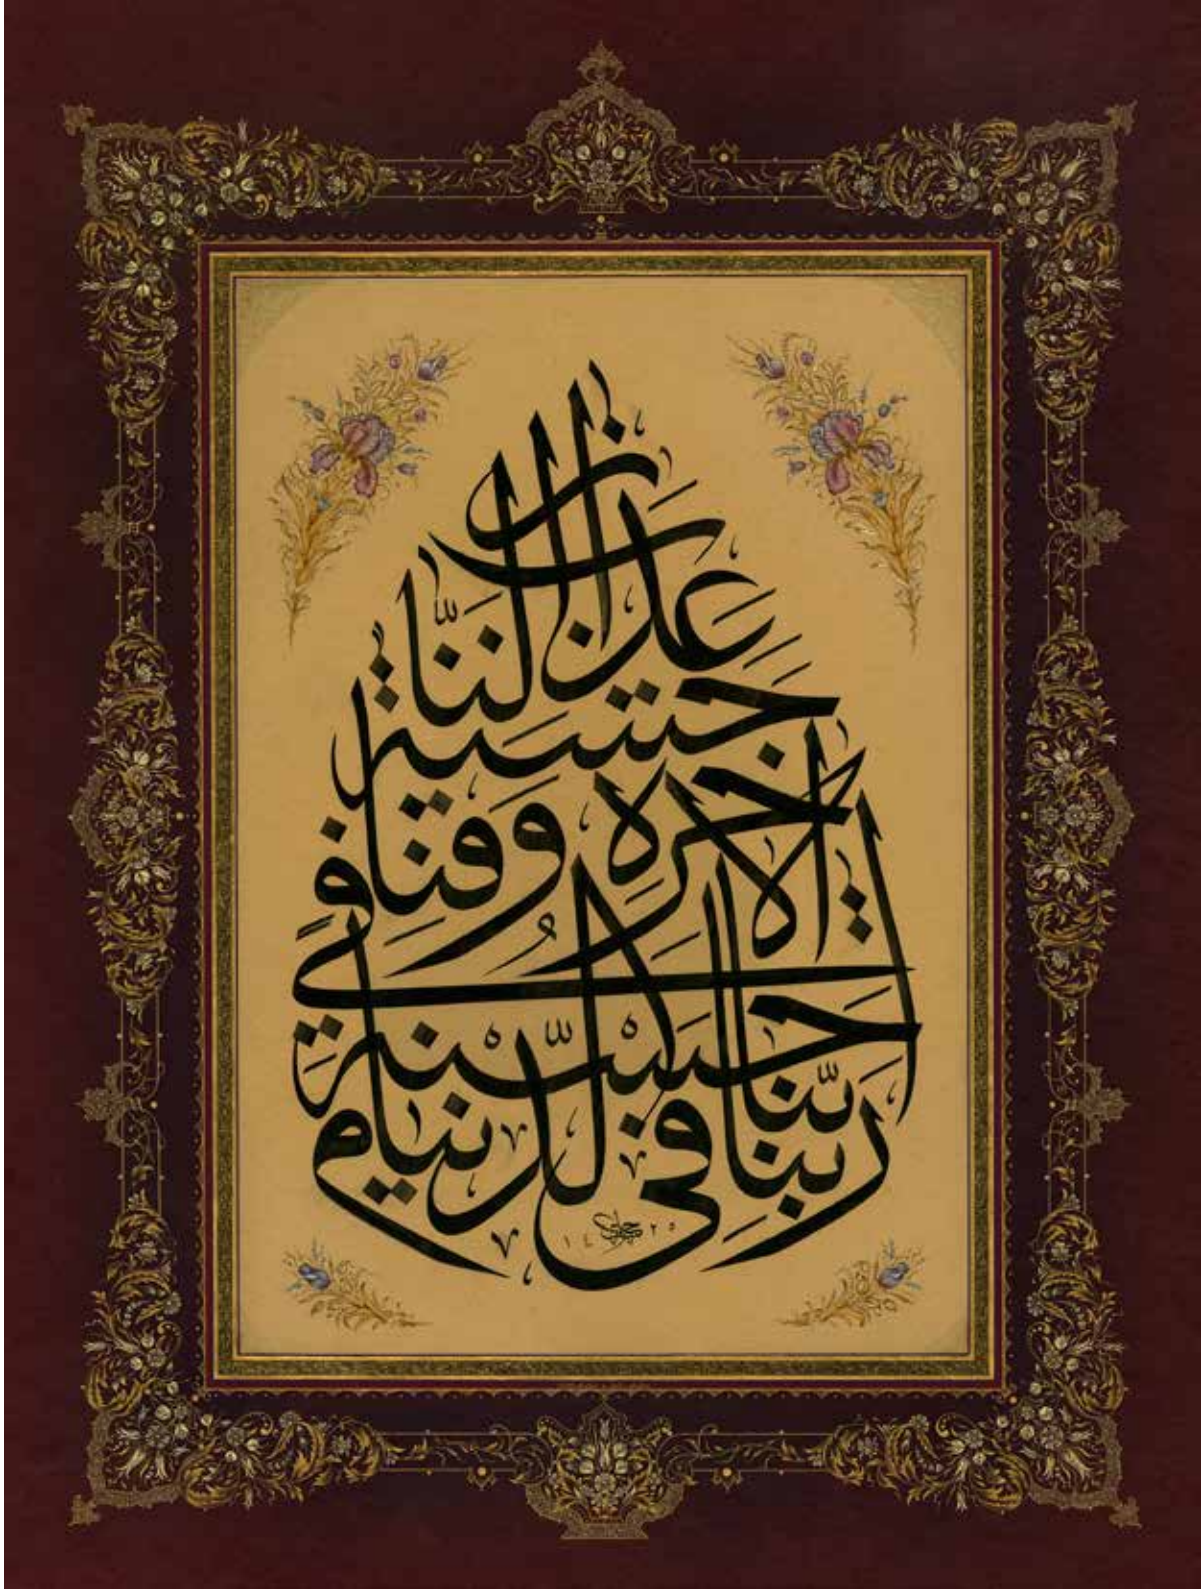 ربنا آتنا في الدنيا حسنة
وفي الآخرة
حسنة وقنا
عذاب النار
١٤٢٥